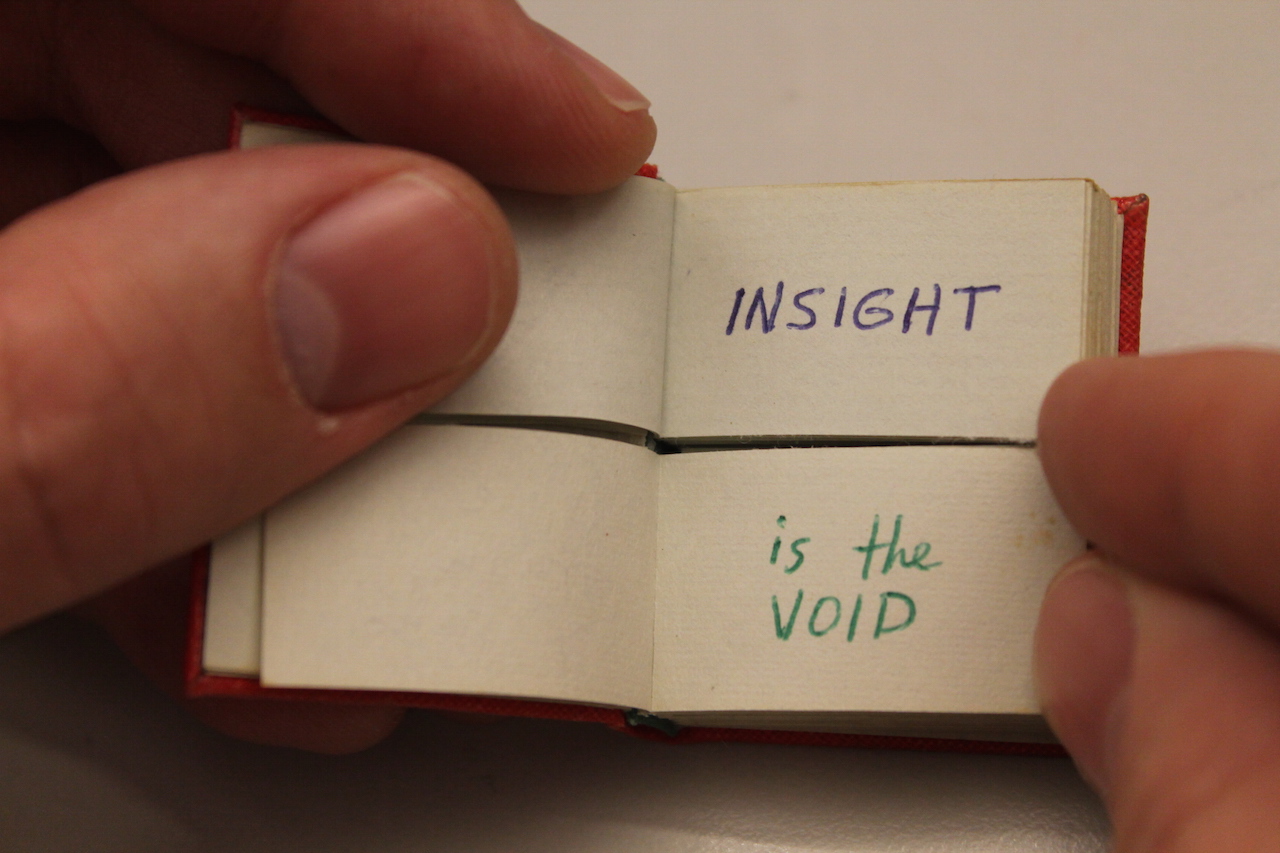 INSIGHT
is the
VOID